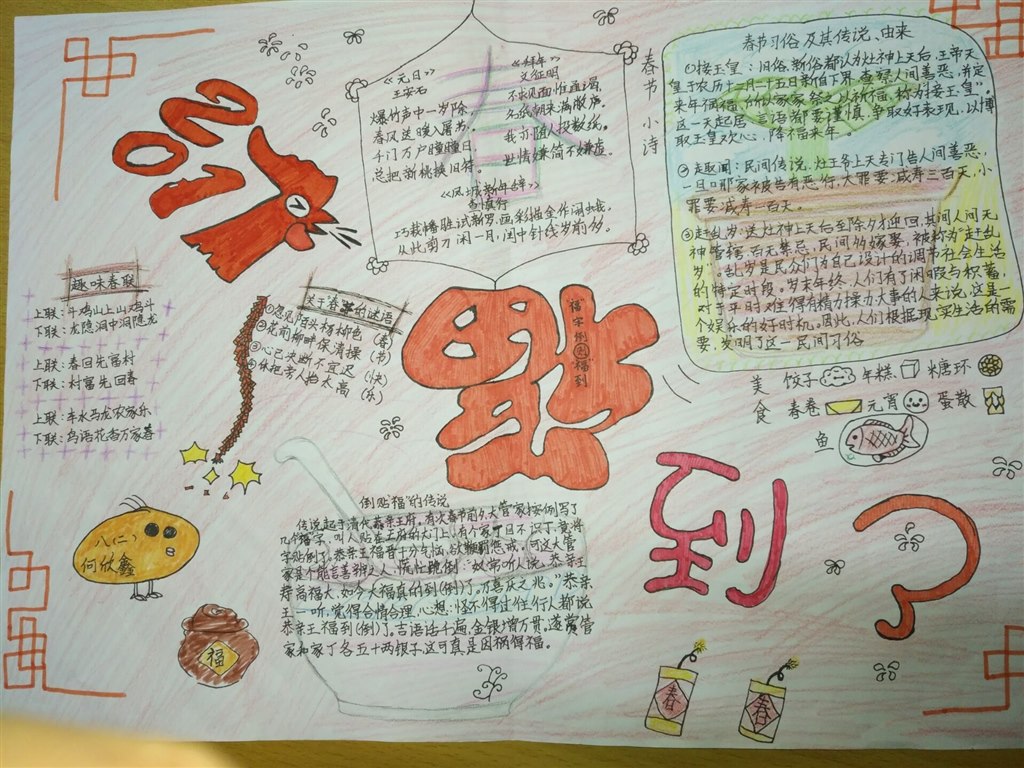 201
《元日》
王安石
爆竹声中一岁除,
春风送暖入屠苏。
千门万户曈曈日,
总把新桃换旧符。
《拜年》
文征明
不求见面惟通谒,
名纸朝来满敝庐。
我亦随人投数纸,
世情嫌简不嫌虚。
《凤城新年辞》
查慎行
巧裁幡胜试新罗,画彩描金作闹蛾。
从此剪刀闲一月,闺中针线岁前多。
春节小诗
春节习俗及其传说、由来
①接玉皇:旧俗,新俗都认为灶神上天后,玉帝天
皇于农历十二月二十五日亲自下界,查察人间善恶,并定
来年祸福,所以家家祭之以祈福,称为“接玉皇”。
这一天起居、言语都要谨慎,争取好表现,以博
取玉皇欢心,降福来年。
②趣闻:民间传说,灶王爷上天专门告人间善恶,
一旦哪家被告有恶行,大罪要减寿三百天,小
罪要减寿一百天。
③赶乱岁:送灶神上天后至除夕才迎回,其间人间无
神管辖,百无禁忌,民间多嫁娶,被称为“赶乱
岁”。乱岁是民众们为自己设计的调节社会生活
的特定时段。岁末年终,人们有了闲暇与积蓄,
对于平时难得有精力操办大事的人来说,这是一
个娱乐的好时机。因此,人们根据现实生活的需
要,发明了这一民间习俗
趣味春联
上联:斗鸡山上山鸡斗
下联:龙隐洞中洞隐龙
上联:春回先富村
下联:村富先回春
上联:车水马龙农家乐
下联:鸟语花香万家春
关于春节的谜语
①忽见陌头杨柳色 (春)
②花前柳畔保清操 (节)
③心已决断不宜迟 (快)
④休把旁人抬太高 (乐)
福
“福”字倒贴“福”到
美食
饺子 年糕 米糖环
春卷 元宵 蛋散
鱼
到
了
倒贴“福”的传说
传说起于清代恭亲王府。有次春节前夕大管家按例写了
几个福字,叫人贴在王府的大门上,有个家丁目不识丁,竟将
字贴倒了。恭亲王福晋十分气恼,欲鞭罚惩戒,可这大管
家是个能言善辩之人,慌忙跪倒:“奴常听人说,恭亲
寿高福大,如今大福真的到(倒)了,乃喜庆之兆。”恭亲
王一听,觉得合情合理,心想:怪不得过往行人都说
恭亲王福到(倒)了。吉语话千遍,金银增万贯。遂赏管
家和家丁各五十两银子,这可真是因祸得福。
八(二)
何欣鑫
福
春
春